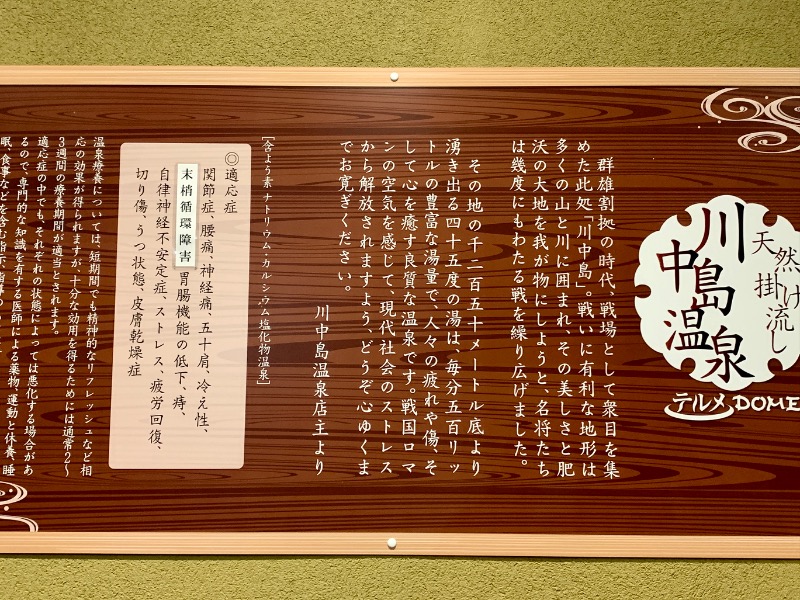 天然掛け流し
川中島温泉
テルメDOME
群雄割拠の時代、戦場として衆目を集
めた此処「川中島」。戦いに有利な地形は
多くの山と川に囲まれ、その美しさと肥
沃の大地を我が物にしようと、名将たち
は幾度にもわたる戦を繰り広げました。
その地の千二百五十メートル底より
湧き出る四十五度の湯は、毎分五百リッ
トルの豊富な湯量で、人々の疲れや傷、そ
して心を癒す良質な温泉です。戦国ロマ
ンの空気を感じて、現代社会のストレス
から解放されますよう、どうぞ心ゆくま
でお寛ぎください。
川中島温泉店主より
[含よう素 ナトリウム・カルシウム塩化物温泉]
◎適応症
関節症、腰痛、神経痛、五十肩、冷え性、
末梢循環障害 胃腸機能の低下、痔、
自律神経不安定症、ストレス、疲労回復、
切り傷、うつ状態、皮膚乾燥症
温泉療養については、短期間でも精神的なリフレッシュなど相
応の効果が得られますが、十分な効用を得るためには通常2〜
3週間の療養期間が適当とされます。
適応症の中でも、それぞれの状態によっては悪化する場合があ
るので、専門的な知識を有する医師による薬物、運動と休養、睡
眠、食事などを含む指示、指導の